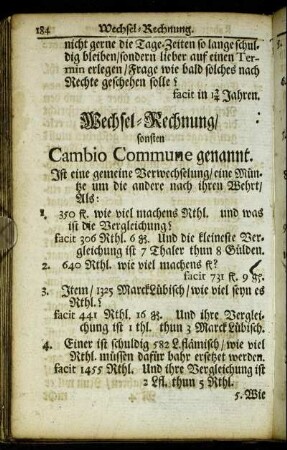 184 Wechsel-Rechnung.
nicht gerne die Tage-Zeiten so lange schul-
dig bleiben/sondern lieber auf einen Ter-
min erlegen/Frage wie bald solches nach
Rechte geschehen solle?
facit in 1¾ Jahren.
Wechsel-Rechnung/
sonsten
Cambio Commune genannt.
Ist eine gemeine Verwechselung/eine Mün-
tze um die andere nach ihren Wehrt/
Als:
1. 350 fl. wie viel machens Rthl. und was
ist die Vergleichung?
facit 306 Rthl. 6 gß. Und die kleineste Ver-
gleichung ist 7 Thaler thun 8 Gülden.
2. 640 Rthl. wie viel machens fl?
facit 731 fl. 9 gß.
3. Item/1325 Marck Lübisch/wie viel seyn es
Rthl.?
facit 441 Rthl. 16 gß. Und ihre Verglei-
chung ist 1 thl. thun 3 Marck Lübisch.
4. Einer ist schuldig 582 L. flämisch/wie viel
Rthl. müssen dafür bahr ersetzet werden.
facit 1455 Rthl. Und ihre Vergleichung ist
2 Lfl. thun 5 Rthl.
5. Wie